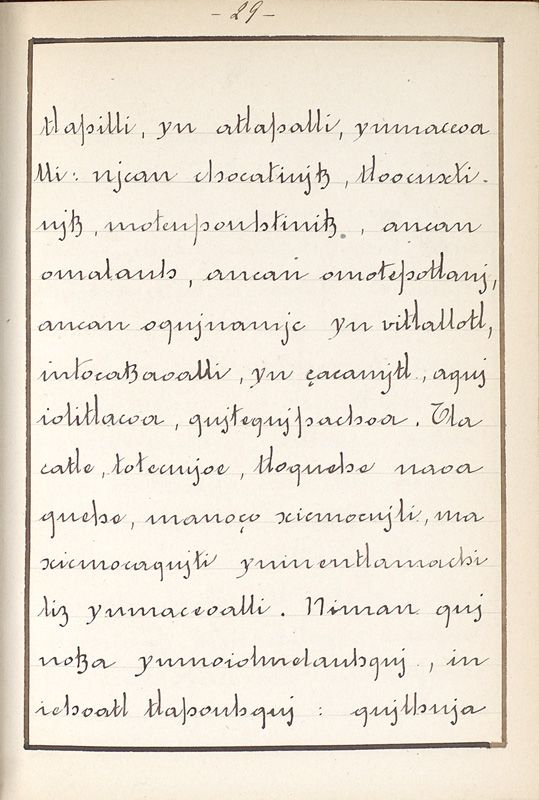 - 29 -
tlapilli, yn atlapalli, ynmaceoa
lli: njcan chocatinjtz, tloocuxti.
njtz, motenpouhtinitz., ancan
omalauh, ancan omotepotlanj,
ancan oqujnamjc yn vitlallotl,
intocatzaoalli, yn çacamjtl, aquj
iolitlacoa, qujtequjpachoa. Tla
catle, totecujoe, tloquehe naoa
quehe, manoço xicmocujli, ma
xicmocaqujti yninentlamachi
liz ynmaceoalli. Niman quj
notza ynmoiolmelauhquj, in
iehoatl tlapouhquj: qujlhuja